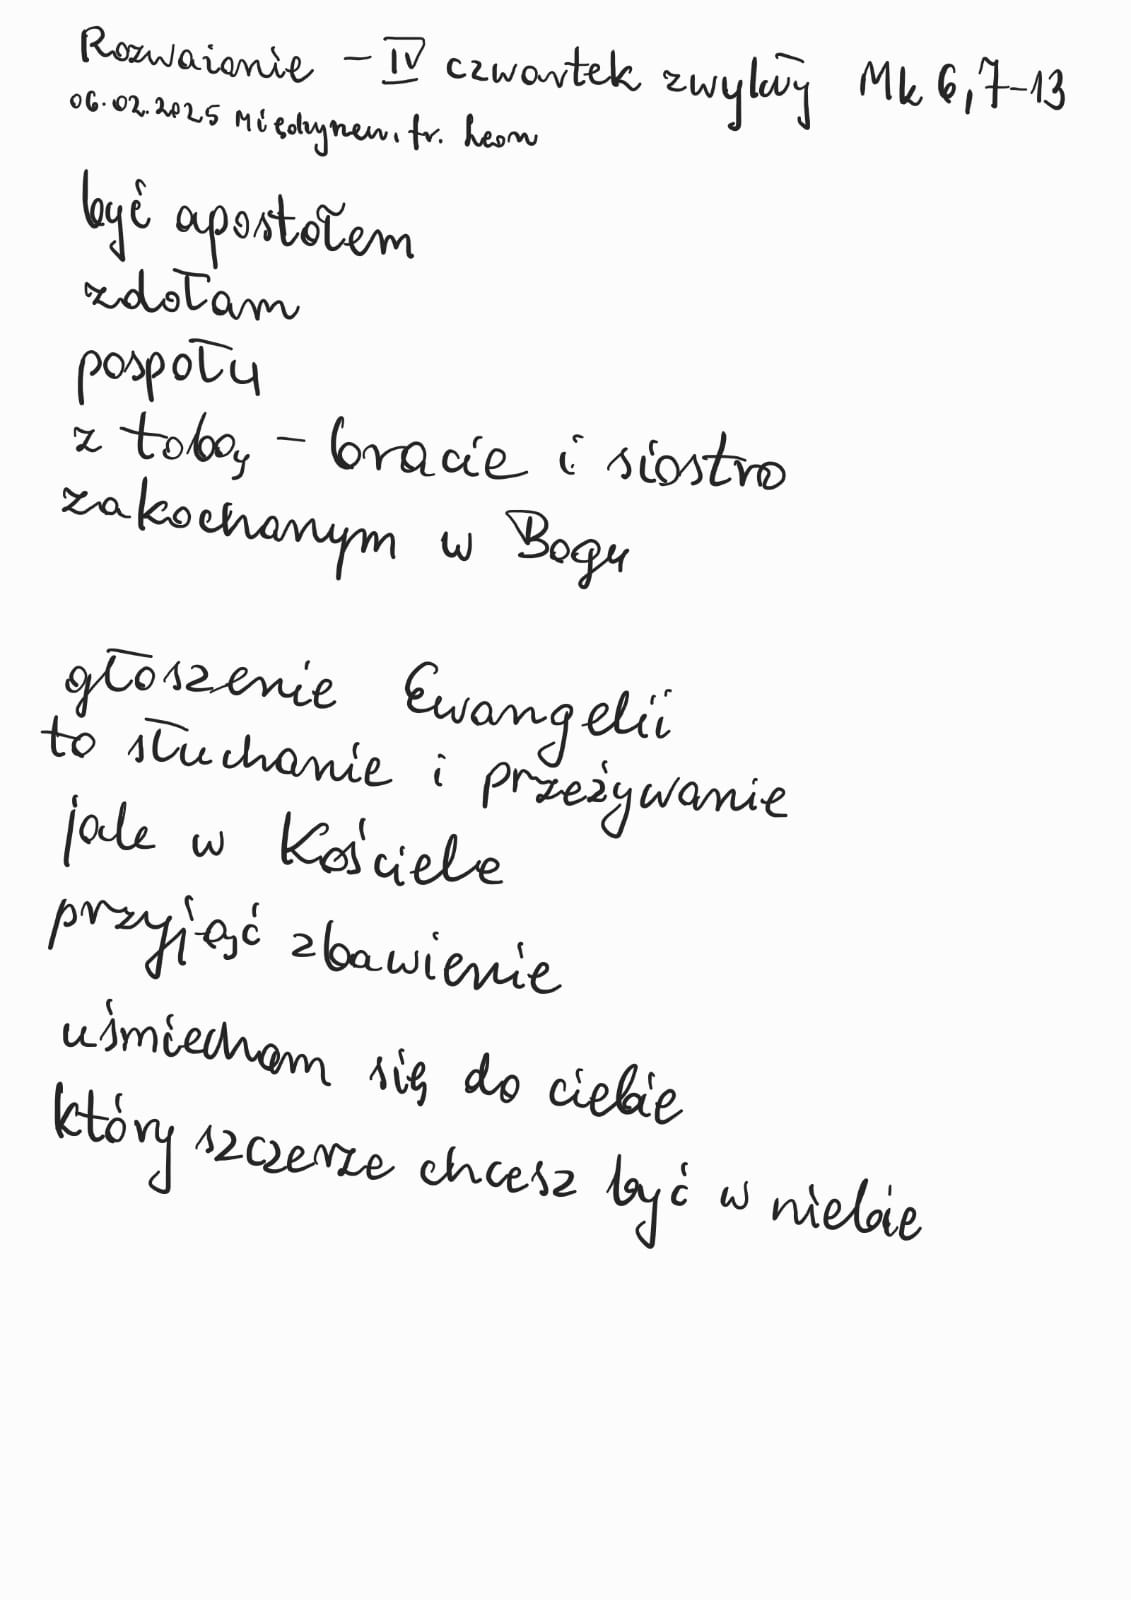 Rozważanie – IV czwartek zwykły Mk 6,7-13
06.02.2025 Międzyrzew. fr. Leon
być apostołem
zdołam
pospołu
z tobą – bracie i siostro
zakochanym w Bogu
głoszenie Ewangelii
to słuchanie i przeżywanie
jak w Kościele
przyjąć zbawienie
uśmiecham się do ciebie
który szczerze chcesz być w niebie